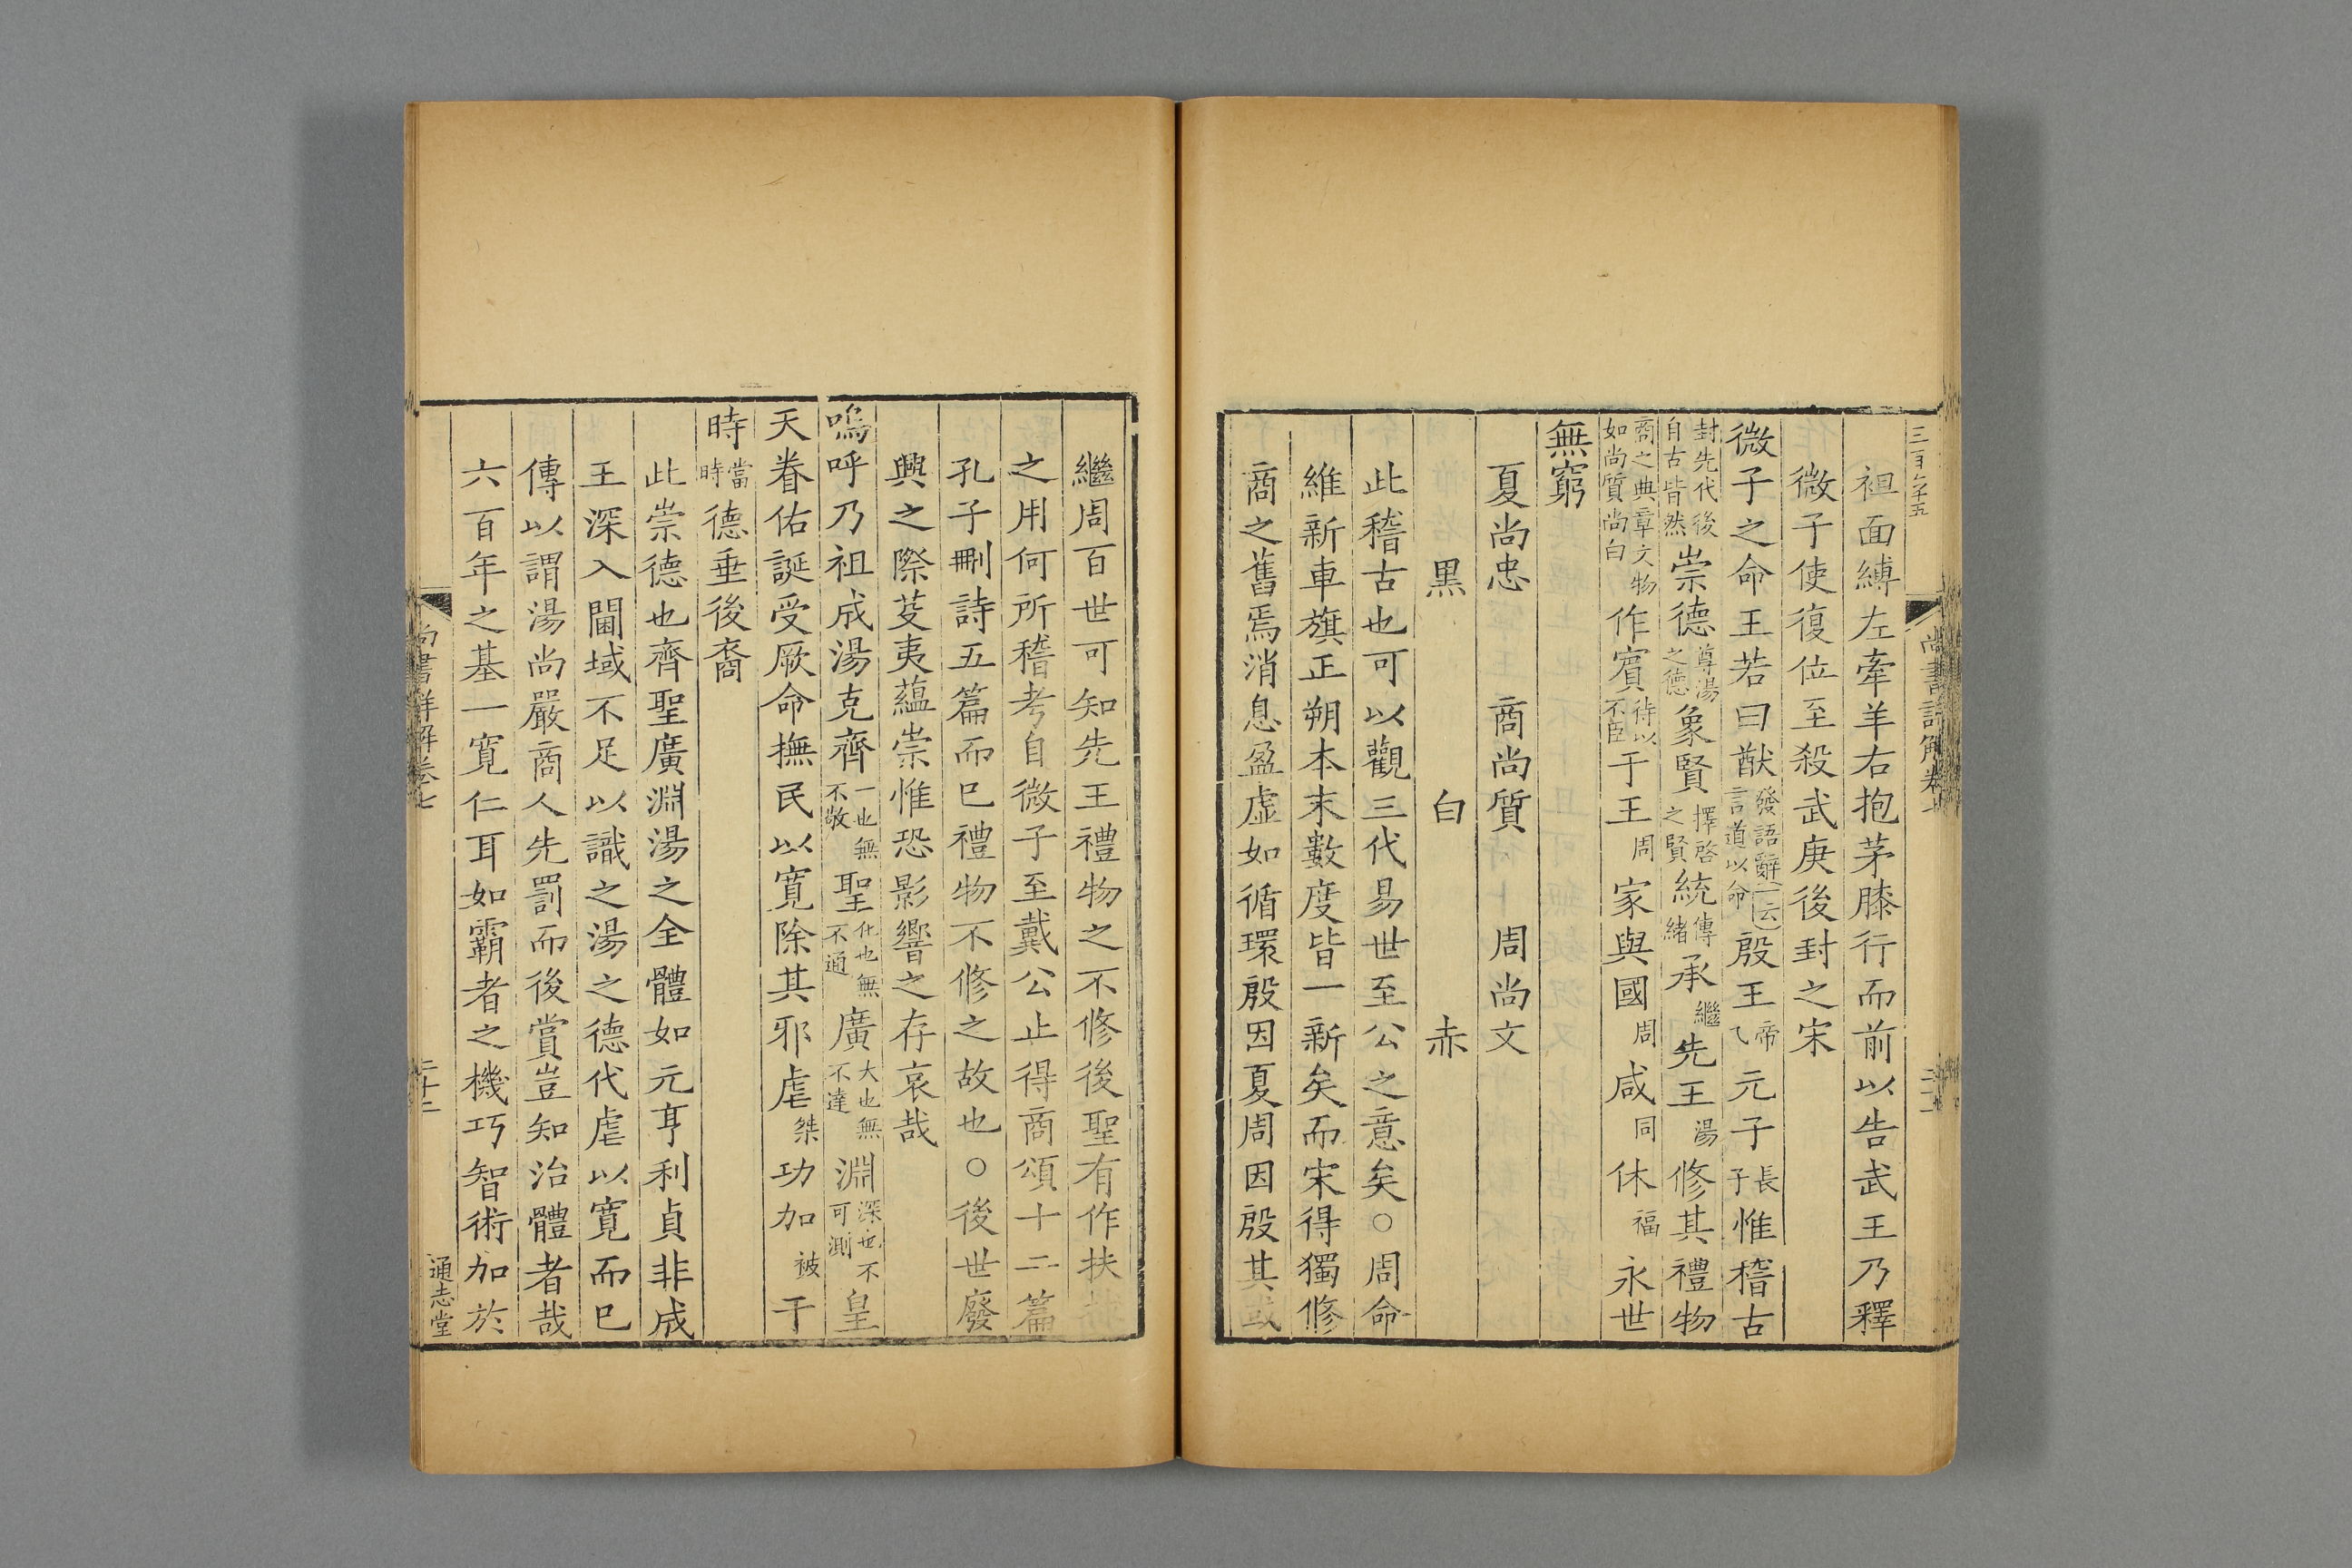 袒面縛左牽羊右抱茅膝行而前以告武王乃釋
微子使復位至殺武庚後封之宋
微子之命王若曰猷發語辭一云言道以命殷王帝乀元子長子惟稽古
封先代後自古皆然崇德尊湯之德象賢擇啓之賢統傳緒承繼先王湯修其禮物
商之典章文物如尚質尚白作賓待以不臣于王周家與國周咸同休福永世
無窮
夏尚忠 商尚質 周尚文
黑 白 赤
此稽古也可以觀三代易世至公之意矣○周命
維新車旗正朔本末數度皆一新矣而宋得獨修
商之舊焉消息盈虛如循環殷因夏周因殷其或
尚書詳解卷七
繼周百世可知先王禮物之不修後聖有作扶
之用何所稽考自微子至戴公止得商頌十二篇
孔子刪詩五篇而已禮物不修之故也○後世廢
興之際芟夷蘊崇惟恐影響之存哀哉
嗚呼乃祖成湯克齊一也無不敬聖化也無不通廣大也無不達淵深也不可測皇
天眷佑誕受厥命撫民以寬除其邪虐桀功加被于
時當時德垂後裔
此崇德也齊聖廣淵湯之全體如元亨利貞非成
王深入閫域不足以識之湯之德代虐以寬而已
傳以謂湯尚嚴商人先罰而後賞豈知治體者哉
六百年之基一寬仁耳如霸者之機巧智術加於
尚書詳解卷七
二十二
通志堂